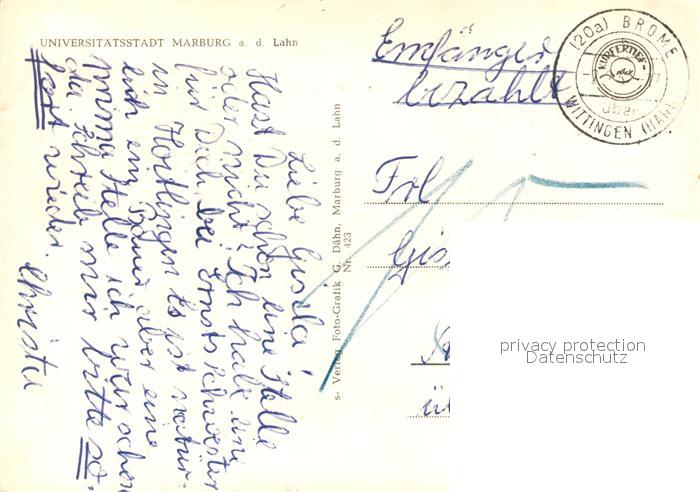 UNIVERSITÄTSSTADT MARBURG a. d. Lahn
Liebe Gisela!
Hast Du schon eine Stelle
oder nicht? Ich habe eine
für Dich bei Ernsts Schwester
in Es ist natür-
lich ein aber eine
prima Stelle ich war schon
da. Schreib mir bitte so-
fort wieder.
Christa
s- Verlag Foto-Grafik G. Dähn, Marburg a. d. Lahn
Nr. 423
Empfänger
bezahlt
(20a) BROME
KUPFERTIEF-
über
WITTINGEN (HAN)
Frl
Gis
ü
privacy protection
Datenschutz